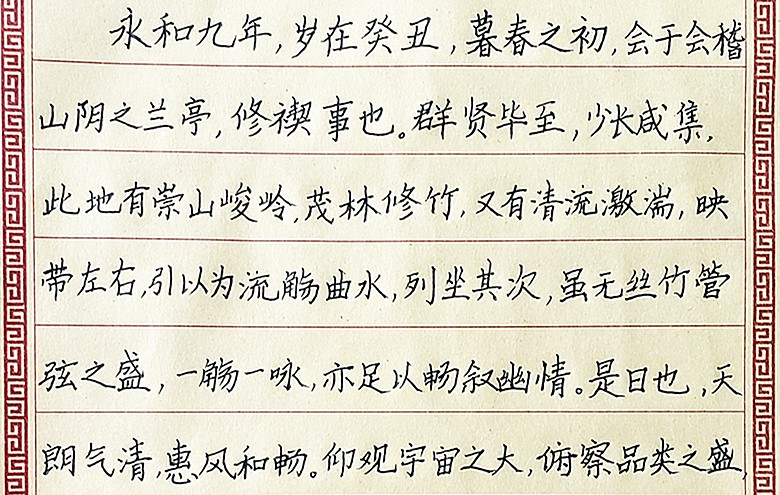 永和九年,岁在癸丑,暮春之初,会于会稽
山阴之兰亭,修禊事也。群贤毕至,少长咸集,
此地有崇山峻岭,茂林修竹,又有清流激湍,映
带左右,引以为流觞曲水,列坐其次,虽无丝竹管
弦之盛,一觞一咏,亦足以畅叙幽情。是日也,天
朗气清,惠风和畅。仰观宇宙之大,俯察品类之盛,